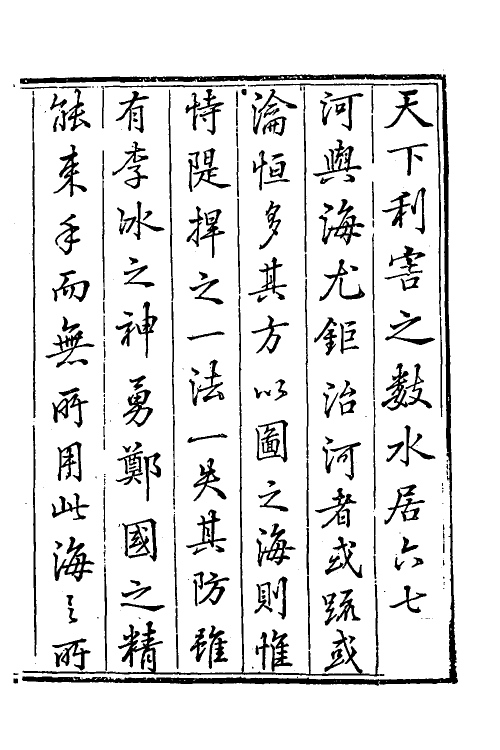 天下利害之數水居六七
河與海尤鉅治河者或疏或
瀹恒多其方以圖之海則惟
恃隄捍之一法一失其防雖
有李冰之神勇鄭國之精
能束手而無所用此海之所